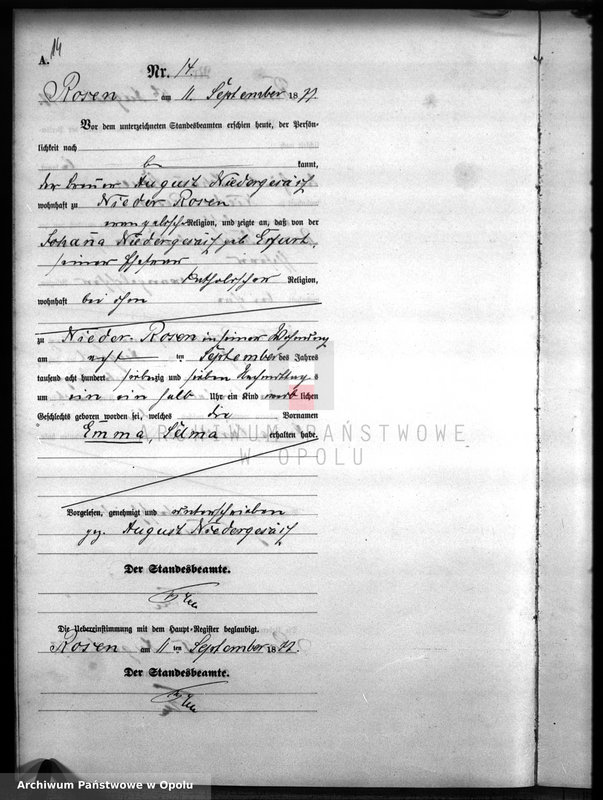 14
A.
Nr. 14.
Rosen am 11. September 1877.
Vor dem unterzeichneten Standesbeamten erschien heute, der Persön-
lichkeit nach
be kannt,
der August Niedergesäß
wohnhaft zu Nieder Rosen
evangelischer Religion, und zeigte an, daß von der
Johanna Niedergesäß geb. Erfurt,
seiner Ehefrau
katholischer Religion,
wohnhaft bei ihm
zu Nieder-Rosen in seiner Wohnung
am acht ten September des Jahres
tausend acht hundert siebenzig und sieben Nachmittags
um ein ein halb Uhr ein Kind weiblichen
Geschlechts geboren worden sei, welches die Vornamen
Emma, Selma erhalten habe.
ARCHIWUM PAŃSTWOWE
W OPOLU
Vorgelesen, genehmigt und unterschrieben
gez. August Niedergesäß
Der Standesbeamte.
Die Uebereinstimmung mit dem Haupt-Register beglaubigt.
Rosen am 11 ten September 1877.
Der Standesbeamte.
Archiwum Państwowe w Opolu